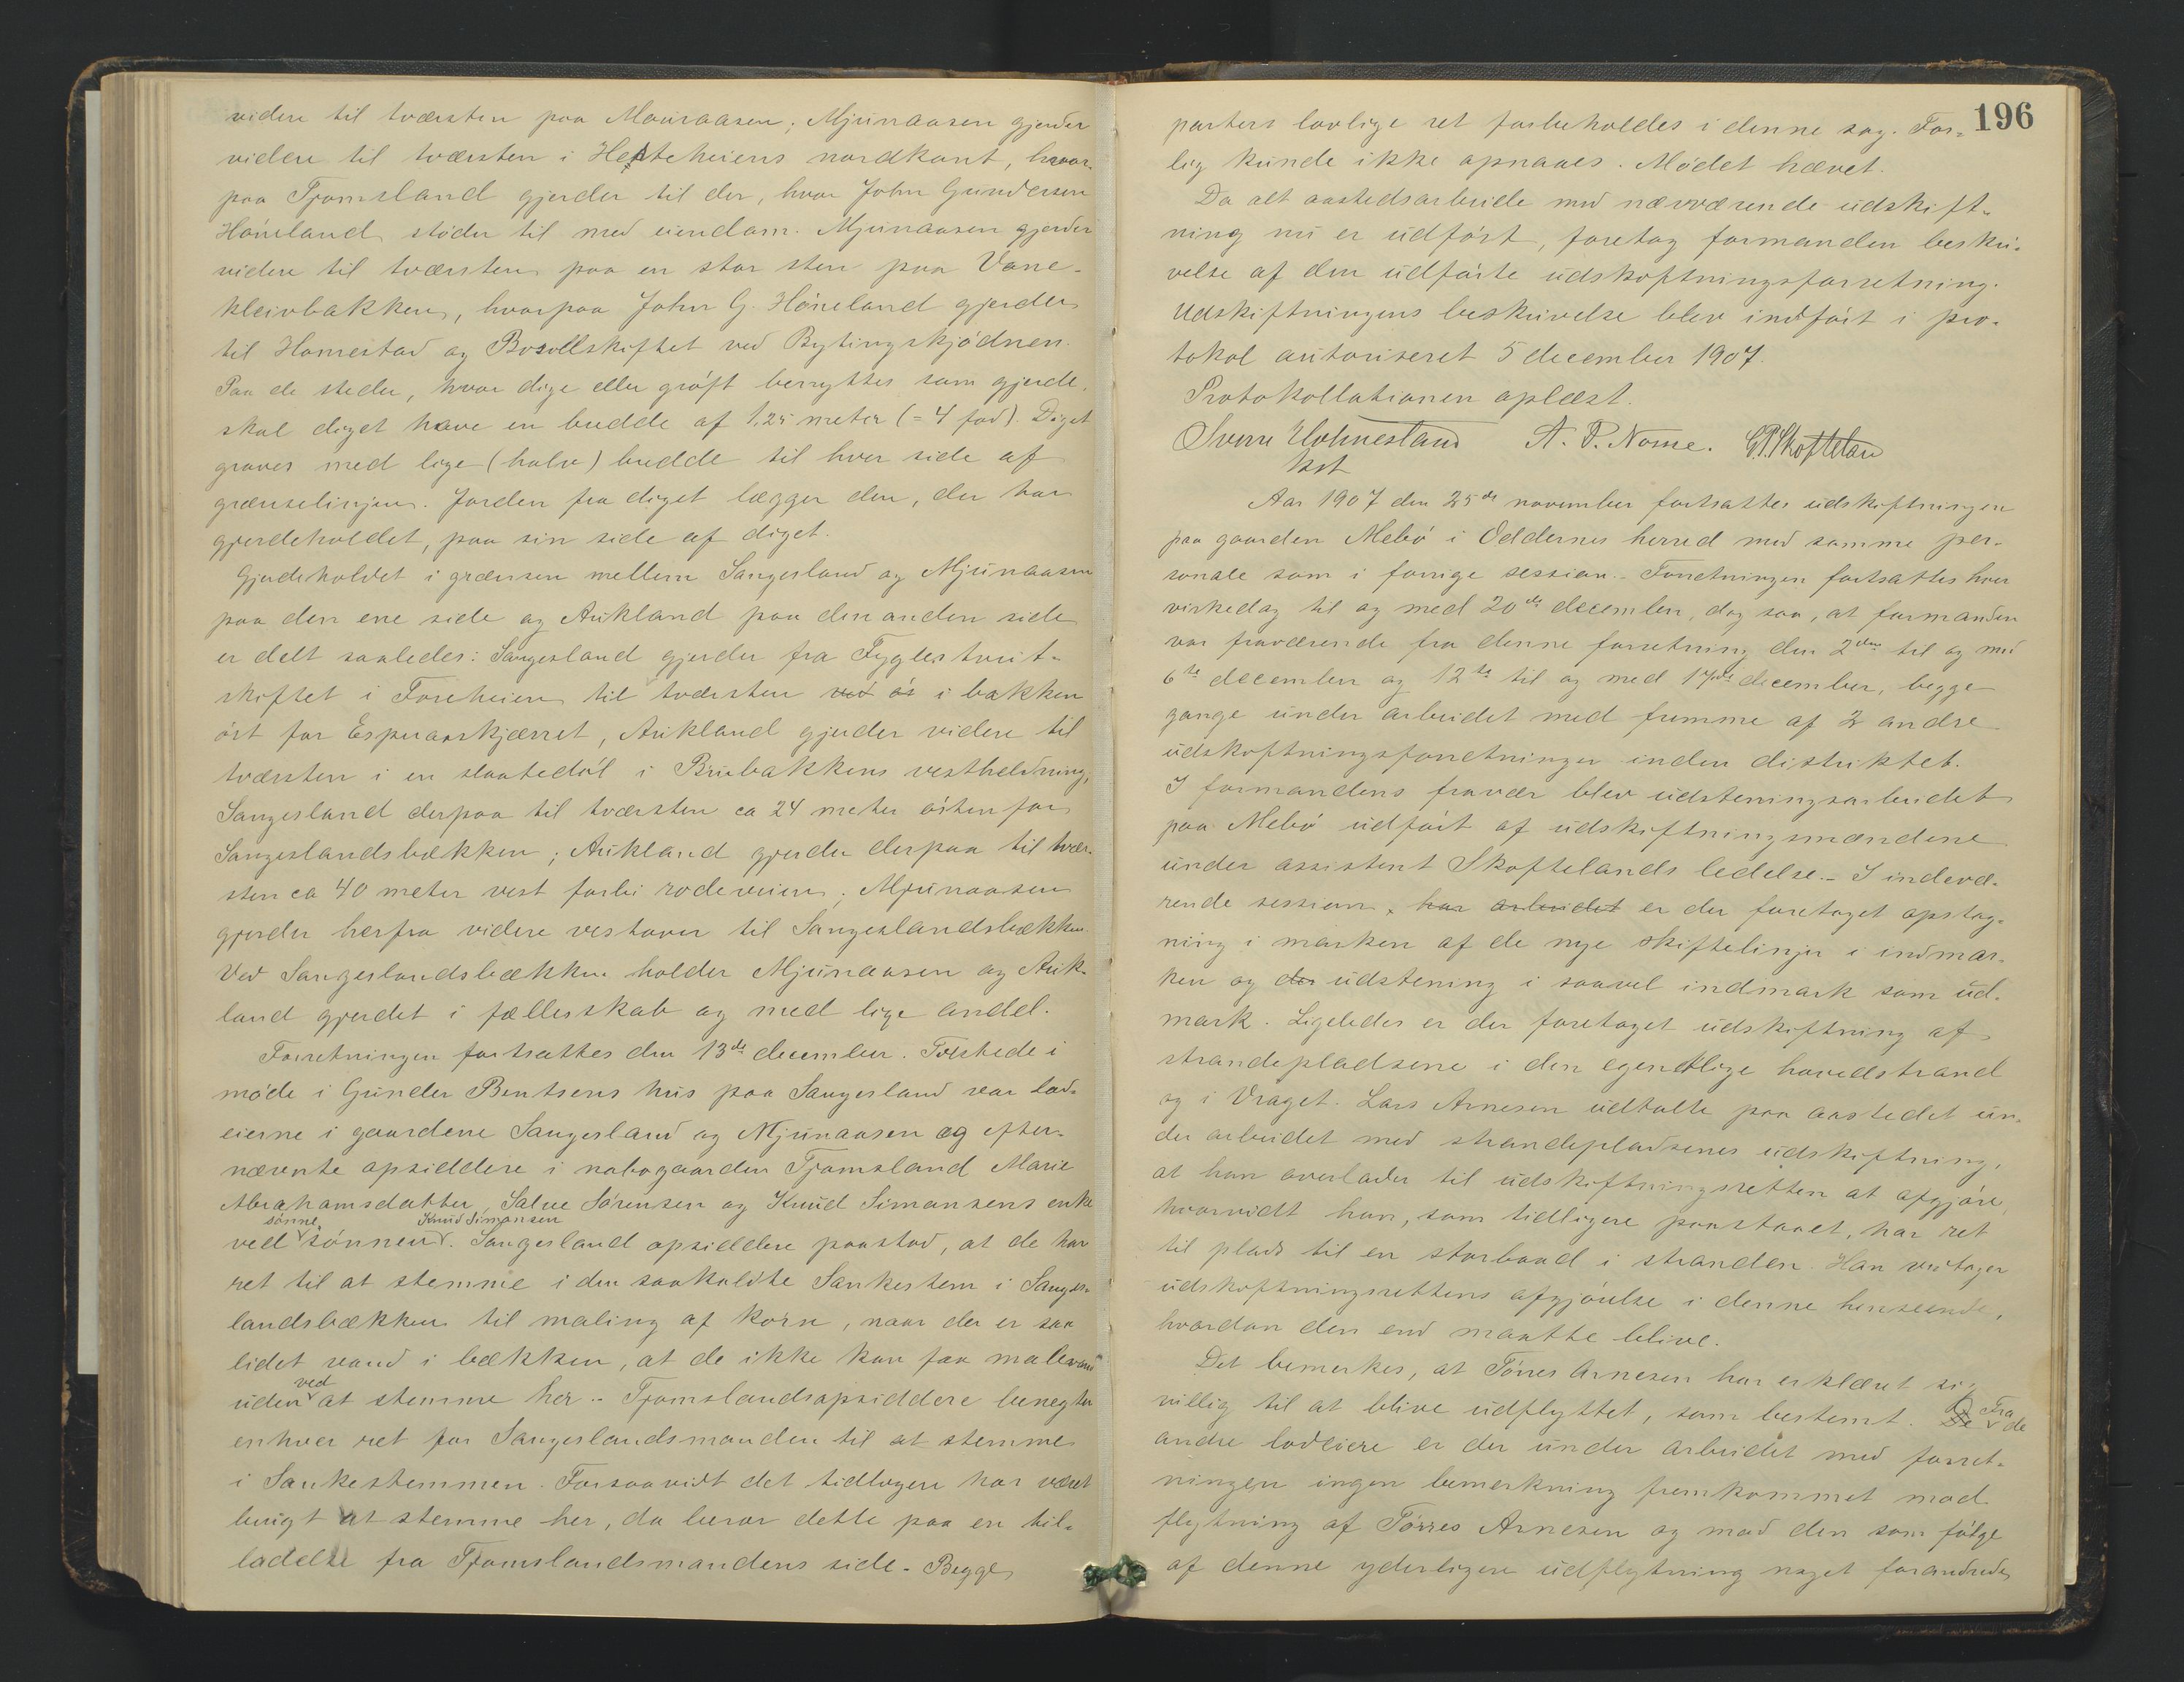 videre til tværsten paa Mauraasen; Mjunaasen gjerder
videre til tværsten i Hesteheiens nordkant, hvor-
paa Tjomsland gjerder til der, hvor John Gundersen
Høneland støder til med eiendom. Mjunaasen gjerder
videre til tværsten paa en stor sten paa Vane-
kleivbakken, hvorpaa John G. Høneland gjerder
til Homestad og Brovollskiftet ved Bytingskjødnen.
Paa de steder, hvor dige eller grøft benyttes som gjerde,
skal diget have en bredde af 1,25 meter (= 4 fod) Diget
graves med lige (halv) bredde til hver side af
grænselinjen. Jorden fra diget lægger den, der har
gjerdeholdet, paa sin side af diget.
Gjerdeholdet i grænsen mellem Sangesland og Mjunaasen
paa den ene side og Aukland paa den anden side
er delt saaledes: Sangesland gjerder fra Fyglestveit-
skiftet i Foreheien til tværsten ved øs i bakken
øst for Esperaaskjærret, Aukland gjerder videre til
tværsten i en slaatedøl i Brubakkens vestheldning,
Sangesland derpaa til tværsten ca 24 meter østen for
Sangeslandsbækken; Aukland gjerder derpaa til tvær-
sten ca 40 meter vest forbi rodeveien; Mjunaasen
gjerder herfra videre vestover til Sangeslandsbækken.
Ved Sangeslandsbækken holder Mjunaasen og Auk-
land gjerdet i fællesskab og med lige andel.
Forretningen fortsættes den 13de december. Tilstede i
møde i Gunder Bentsens hus paa Sangesland var lod-
eierne i gaardene Sangesland og Mjunaasen og efter-
nævnte opsiddere i nabogaarden Tjomsland Marie
Abrahamsdatter, Salve Sørensen og Knud Simonsens enke
sønne Knud Simonsen
ved sønnen. Sangesland opsiddere paastod, at de har
ret til at stemme i den saakaldte Sankestem i Sanges-
landsbækken til maling af korn, naar der er saa
lidet vand i bækken, at de ikke kan faa malevand
ved
uden at stemme her. - Tjomslandsopsiddere benegter
enhver ret for Sangeslandsmanden til at stemme
i Sankestemmen. Forsaavidt det tidligere har været
brugt at stemme her, da beror dette paa en til-
ladelse fra Tjomslandsmandens side. - Begge
196
parters lovlige ret forbeholdes i denne sag. For-
lig kunde ikke opnaaes. Mødet hævet.
Da alt aastedsarbeide med nærværende udskift-
ning nu er udført, foretog formanden beskri-
velse af den udførte udskiftningsforretning.
Udskiftningens beskrivelse blev indført i pro-
tokol autoriseret 5 december 1907.
Protokollationen oplæst.
Sverre Holmesland A. P. Nome. G. P. Skofteland
kst
Aar 1907 den 25de november fortsattes udskiftningen
paa gaarden Mebø i Oddernes herred med samme per-
sonale som i forrige session. - Forretningen fortsattes hver
virkedag til og med 20de december, dog saa, at formanden
var fraværende fra denne forretning den 2den til og med
6te december og 12te til og med 17de december, begge
gange under arbeidet med fremme af 2 andre
udskiftningsforretninger inden distriktet.
I formandens fravær blev udsteningsarbeidet
paa Mebø udført af udskiftningsmændene
under assistent Skoftelands ledelse. - I indevæ-
rende session, har arbeidet er der foretaget opstag-
ning i marken af de nye skiftelinjer i indmar-
ken og der udstening i saavel indmark som ud-
mark. Ligeledes er der foretaget udskiftning af
strandepladsene i den egentlige hovedstrand
og i Vraget. Lars Arnesen udtalte paa aastedet un-
der arbeidet med strandepladsenes udskiftning,
at han overlader til udskiftningsretten at afgjøre,
hvorvidt han, som tidligere paastaaet, har ret
til plads til en storbaad i stranden. Han vedtager
udskiftningsrettens afgjørelse i denne henseende,
hvordan den end maatte blive.
Det bemerkes, at Tørres Arnesen har erklæret sig
villig til at blive udflyttet, som bestemt. De Fra de
andre lodeiere er der under arbeidet med forret-
ningen ingen bemerkning fremkommet mod
flytning af Tørres Arnesen og mod den som følge
af denne yderligere udflytning noget forandrede